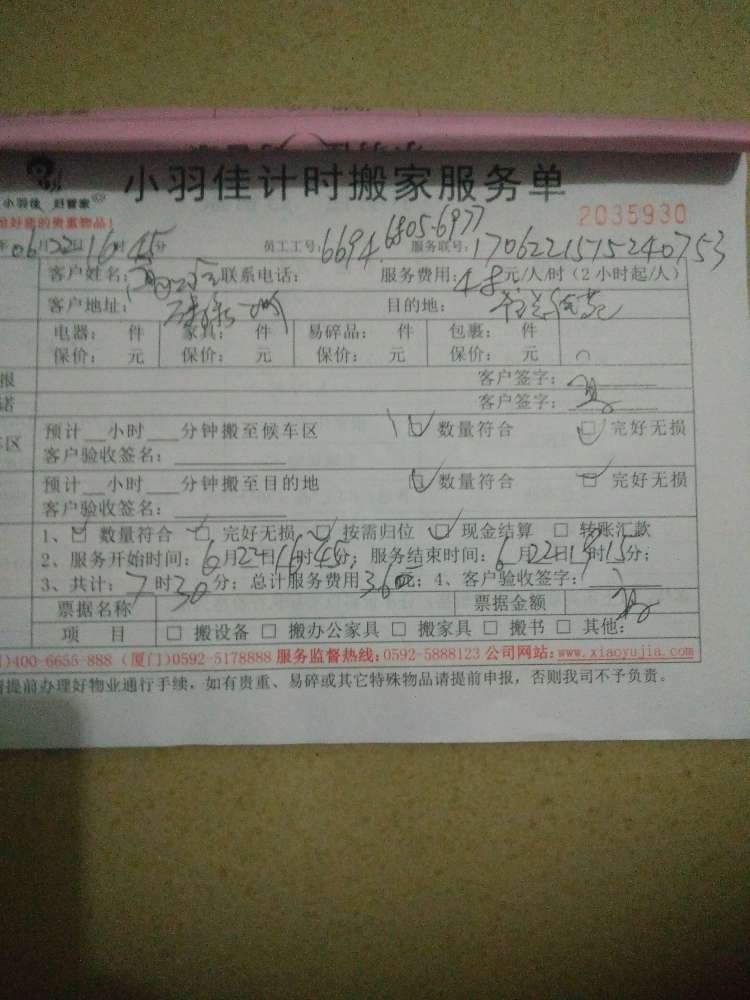 小羽佳计时搬家服务单
小羽佳 好管家
好您的贵重物品!
2035930
年06月22日16时45分 员工工号:6694.6805-6977 服务联号:1706221515240753
客户姓名: 联系电话: 服务费用:48元/人/时(2小时起/人)
客户地址: 目的地:
电器: 件 家具: 件 易碎品: 件 包裹: 件
保价: 元 保价: 元 保价: 元 保价: 元
报 客户签字:
诺 客户签字:
车区 预计__小时___分钟搬至候车区 ☑数量符合 ☑完好无损
客户验收签名:
预计__小时___分钟搬至目的地 ☑数量符合 ☑完好无损
客户验收签名:
1、☑ 数量符合 ☑ 完好无损 ☑ 按需归位 ☑ 现金结算 □ 转账汇款
2、服务开始时间:6月22日16时45分;服务结束时间:6月22日19时15分;
3、共计:7时30分;总计服务费用360元;4、客户验收签字:
票据名称 票据金额
项 目 □ 搬设备 □ 搬办公家具 □ 搬家具 □ 搬书 □ 其他:
)400-6655-888 (厦门)0592-5178888 服务监督热线:0592-5888123 公司网站:www.xiaoyujia.com
提前办理好物业通行手续,如有贵重、易碎或其它特殊物品请提前申报,否则我司不予负责。